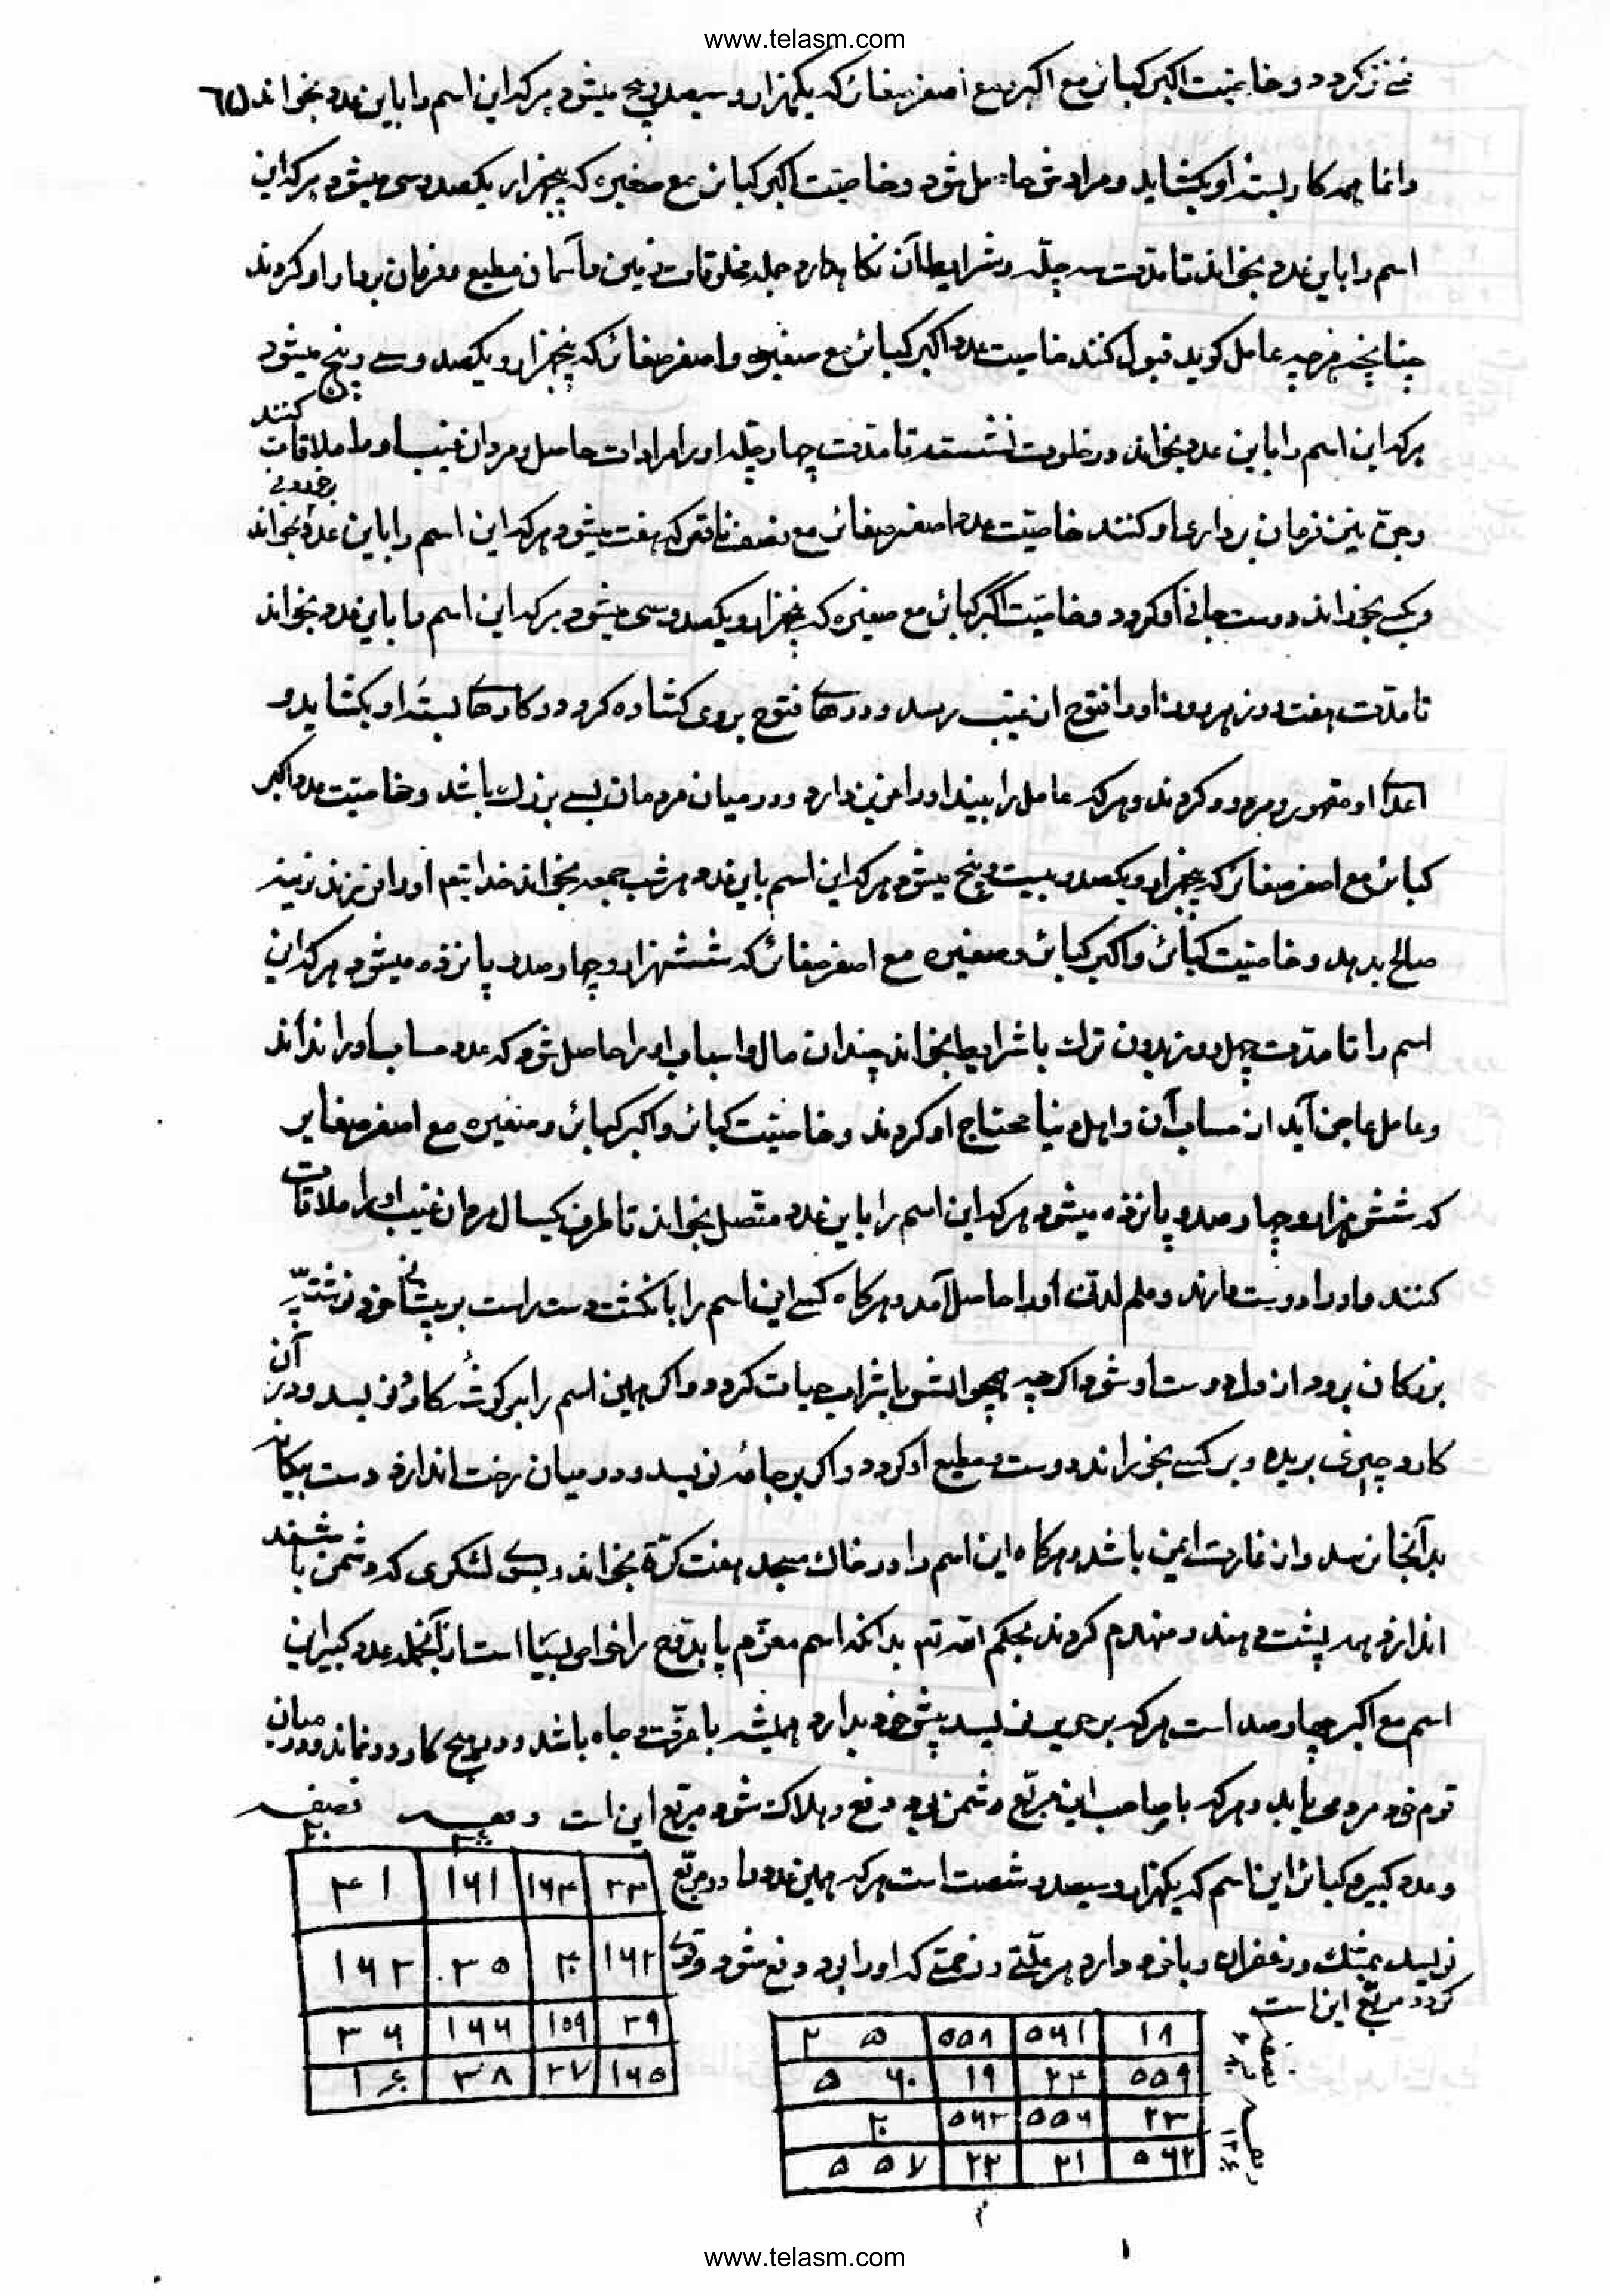 www.telasm.com
گردد و خاصیت اکبر کبائر مع اکبر مع اصغر صغائر که یکهزار و سیصد و پنج میشود هر که این اسم را باین عدد بخواند
دائما همه کار بسته او بکشاید و مرادش حاصل شود و خاصیت اکبر کبائر مع صغیره که پنجهزار یکصد و سی میشود هر که این
اسم را باین عدد بخواند تا مدت سه چله و شرایط آن نکاهدارد جمله مخلوقات زمین و آسمان مطیع و فرمان بردار او کردند
چنانچه هرچه عامل کوید قبول کنند خاصیت عدد اکبر کبائر مع صغیره و اصغر صغائر که پنجهزار و یکصد و سے و پنج میشود
هر که این اسم را باین عدد بخواند در خلوت نشسته تا مدت چهار چله او را مرادات حاصل و مردان غیب او را ملاقات کنند
و جن نیز فرمان برداری او کنند خاصیت عدد اصغر صغائر مع نصف ناقص که هفت میشود هر که این اسم را باین عدد بخواند
و بکسے بخوراند دوست جانی او کردد و خاصیت اکبر کبائر مع صغیره که پنجهزار و یکصد و سی میشود هر که این اسم را باین عدد بخواند
تا مدت هفت روز هر روز او را فتوح از غیب برسد و درهاے فتوح بروی کشاده کردد و کارهاے بسته او بکشاید و
اعداے او مقهور و مردود کردند و هر که عامل را ببیند او را عزیز دارد و در میان مردمان بسے بزرك باشد و خاصیت عدد اکبر
کبائر مع اصغر صغائر که پنجهزار و یکصد و بیست و پنج میشود هر که این اسم باین عدد هر شب جمعه بخواند خدایتعم او را فرزند نرینه
صالح بدهد و خاصیت کبائر و اکبر کبائر و صغیره مع اصغر صغائر که ششهزار و چهار صد و پانزده میشود هر که این
اسم را تا مدت چهل روز بدون ترك با شرایط بخواند چندان مال و اسباب او را حاصل شود که عدد حساب او را نداند
و عامل عاجز آید از حساب آن و اهل دنیا محتاج او کردند و خاصیت کبائر و اکبر کبائر و صغیره مع اصغر صغایر
که شش هزار و چهار صد و پانزده میشود هر که این اسم را باین عدد متصل بخواند تا طرف یکسال مردان غیب او را ملاقات
کنند و او را دوست دارند و علم لدنی او را حاصل آمد و هرکاه کسے این اسم را بانکشت دست راست بر پیشانے خود نوشته پیش
بزرکان برود از دل دوست او شود اکرچه همچو آتش با شراب حیات کردد و اکر همین اسم را بر کوشه کارد نویسد و در آن
کارد چیزی بریده و بر کسے بخوراند دوست و مطیع او کردد و اکر بر جامه نویسد و در میان رخت اندازد دست بیکانه
بدآنجا نرسد و از غارت ایمن باشد و هرکاه این اسم را در خاك مسجد هفت کرّة بخواند و بسوی لشکری که دشمن باشند
اندازد همه پشت دهند و منهدم کردند بحکم الله تعم بدانکه اسم معزم را خواص بسیار است از آنجمله عدد کبیر این
اسم مع اکبر چهار صد است هر که بر حریر نویسد پیش خود بدارد همیشه با عزت و جاه باشد و در هیچ کار درنماند و در میان
قوم خود مردمی یابد و هر که با صاحب این مربّع دشمن بود دفع و هلاک شود مربّع این است
و عدد کبیر و کبائر این اسم که یکهزار و سیصد و شصت است هر که همین عدد را در مربّع
نویسد بمشك و زعفران و با خود دارد هر علّتے و زحمتے که او را بود دفع شود و قوی
کردد مربّع این است
۴۱ ۱۶۱ ۱۶۴ ۳۴
۱۶۳ ۳۵ ۴۰ ۱۶۲
۳۶ ۱۶۶ ۱۵۹ ۳۹
۱۶۰ ۳۸ ۳۷ ۱۶۵
۲۵ ۵۵۸ ۵۶۱ ۱۸
۵۶۰ ۱۹ ۲۴ ۵۵۹
۲۰ ۵۶۳ ۵۵۶ ۲۳
۵۵۷ ۲۲ ۲۱ ۵۶۲
www.telasm.com